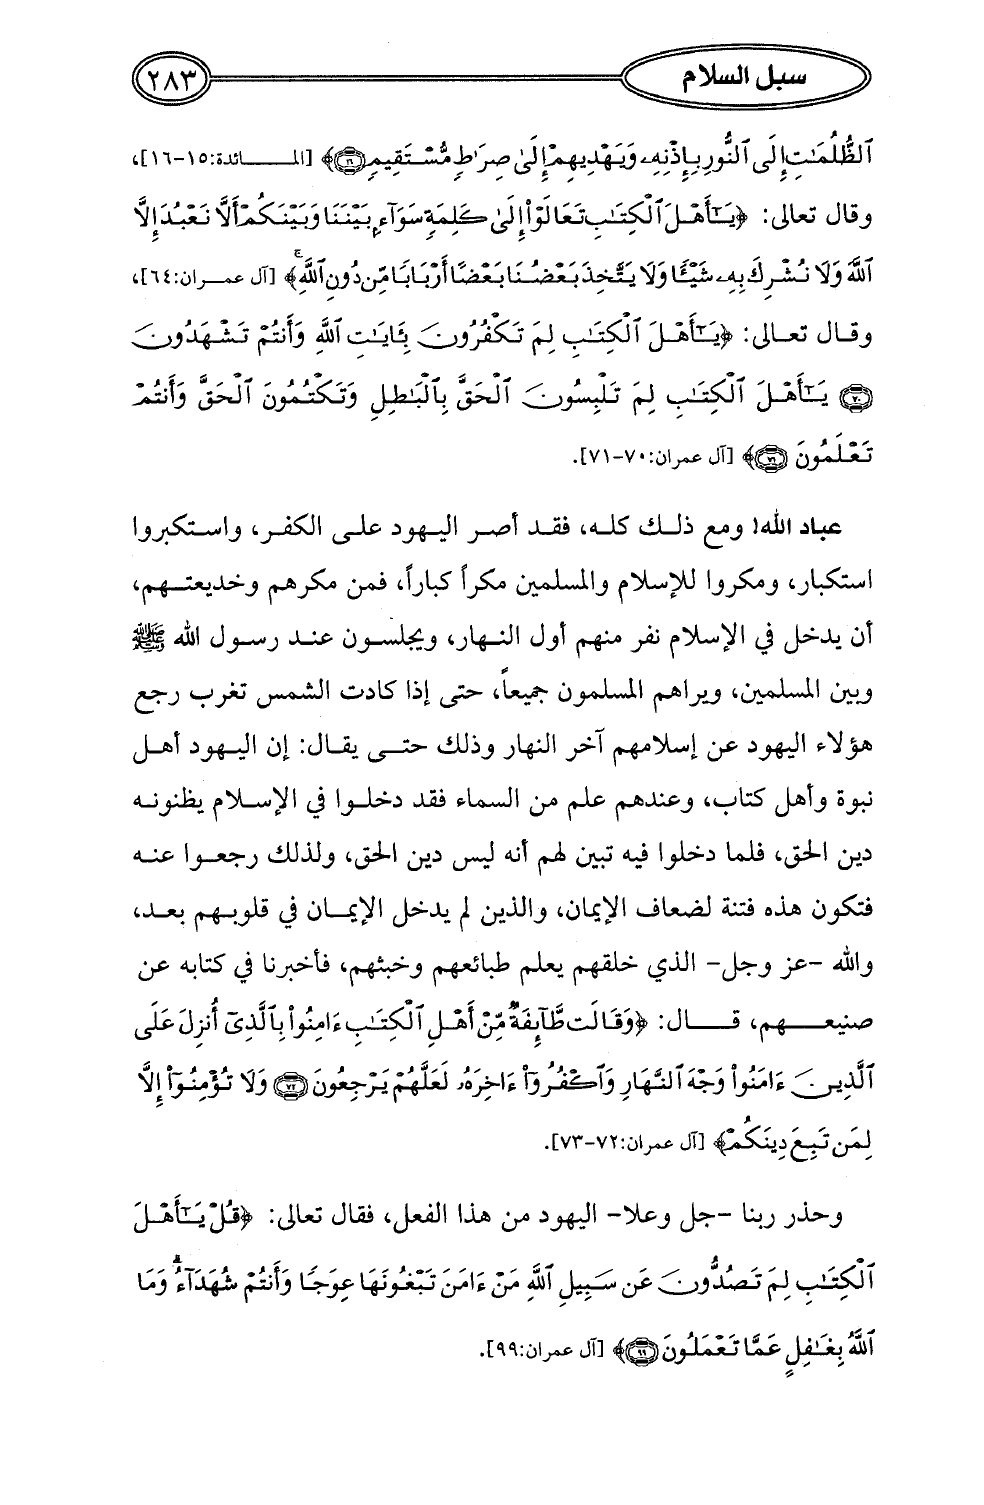 سبل السلام
٢٨٣
ٱلظُّلُمَٰتِ إِلَى ٱلنُّورِ بِإِذْنِهِۦ وَيَهْدِيهِمْ إِلَىٰ صِرَٰطٍ مُّسْتَقِيمٍ ۝١٦﴾ [المائدة:١٥-١٦]،
وقال تعالى: ﴿يَٰٓأَهْلَ ٱلْكِتَٰبِ تَعَالَوْا۟ إِلَىٰ كَلِمَةٍ سَوَآءٍۭ بَيْنَنَا وَبَيْنَكُمْ أَلَّا نَعْبُدَ إِلَّا
ٱللَّهَ وَلَا نُشْرِكَ بِهِۦ شَيْـًٔا وَلَا يَتَّخِذَ بَعْضُنَا بَعْضًا أَرْبَابًا مِّن دُونِ ٱللَّهِۚ﴾ [آل عمران:٦٤]،
وقال تعالى: ﴿يَٰٓأَهْلَ ٱلْكِتَٰبِ لِمَ تَكْفُرُونَ بِـَٔايَٰتِ ٱللَّهِ وَأَنتُمْ تَشْهَدُونَ
۝٧٠ يَٰٓأَهْلَ ٱلْكِتَٰبِ لِمَ تَلْبِسُونَ ٱلْحَقَّ بِٱلْبَٰطِلِ وَتَكْتُمُونَ ٱلْحَقَّ وَأَنتُمْ
تَعْلَمُونَ ۝٧١﴾ [آل عمران:٧٠-٧١].
عباد الله! ومع ذلك كله، فقد أصر اليهود على الكفر، واستكبروا
استكبار، ومكروا للإسلام والمسلمين مكراً كباراً، فمن مكرهم وخديعتهم،
أن يدخل في الإسلام نفر منهم أول النهار، ويجلسون عند رسول الله ﷺ
وبين المسلمين، ويراهم المسلمون جميعاً، حتى إذا كادت الشمس تغرب رجع
هؤلاء اليهود عن إسلامهم آخر النهار وذلك حتى يقال: إن اليهود أهل
نبوة وأهل كتاب، وعندهم علم من السماء فقد دخلوا في الإسلام يظنونه
دين الحق، فلما دخلوا فيه تبين لهم أنه ليس دين الحق، ولذلك رجعوا عنه
فتكون هذه فتنة لضعاف الإيمان، والذين لم يدخل الإيمان في قلوبهم بعد،
والله -عز وجل- الذي خلقهم يعلم طبائعهم وخبثهم، فأخبرنا في كتابه عن
صنيعهم، قال: ﴿وَقَالَت طَّآئِفَةٌ مِّنْ أَهْلِ ٱلْكِتَٰبِ ءَامِنُوا۟ بِٱلَّذِىٓ أُنزِلَ عَلَى
ٱلَّذِينَ ءَامَنُوا۟ وَجْهَ ٱلنَّهَارِ وَٱكْفُرُوٓا۟ ءَاخِرَهُۥ لَعَلَّهُمْ يَرْجِعُونَ ۝٧٢ وَلَا تُؤْمِنُوٓا۟ إِلَّا
لِمَن تَبِعَ دِينَكُمْ﴾ [آل عمران:٧٢-٧٣].
وحذر ربنا -جل وعلا- اليهود من هذا الفعل، فقال تعالى: ﴿قُلْ يَٰٓأَهْلَ
ٱلْكِتَٰبِ لِمَ تَصُدُّونَ عَن سَبِيلِ ٱللَّهِ مَنْ ءَامَنَ تَبْغُونَهَا عِوَجًا وَأَنتُمْ شُهَدَآءُۗ وَمَا
ٱللَّهُ بِغَٰفِلٍ عَمَّا تَعْمَلُونَ ۝٩٩﴾ [آل عمران:٩٩].